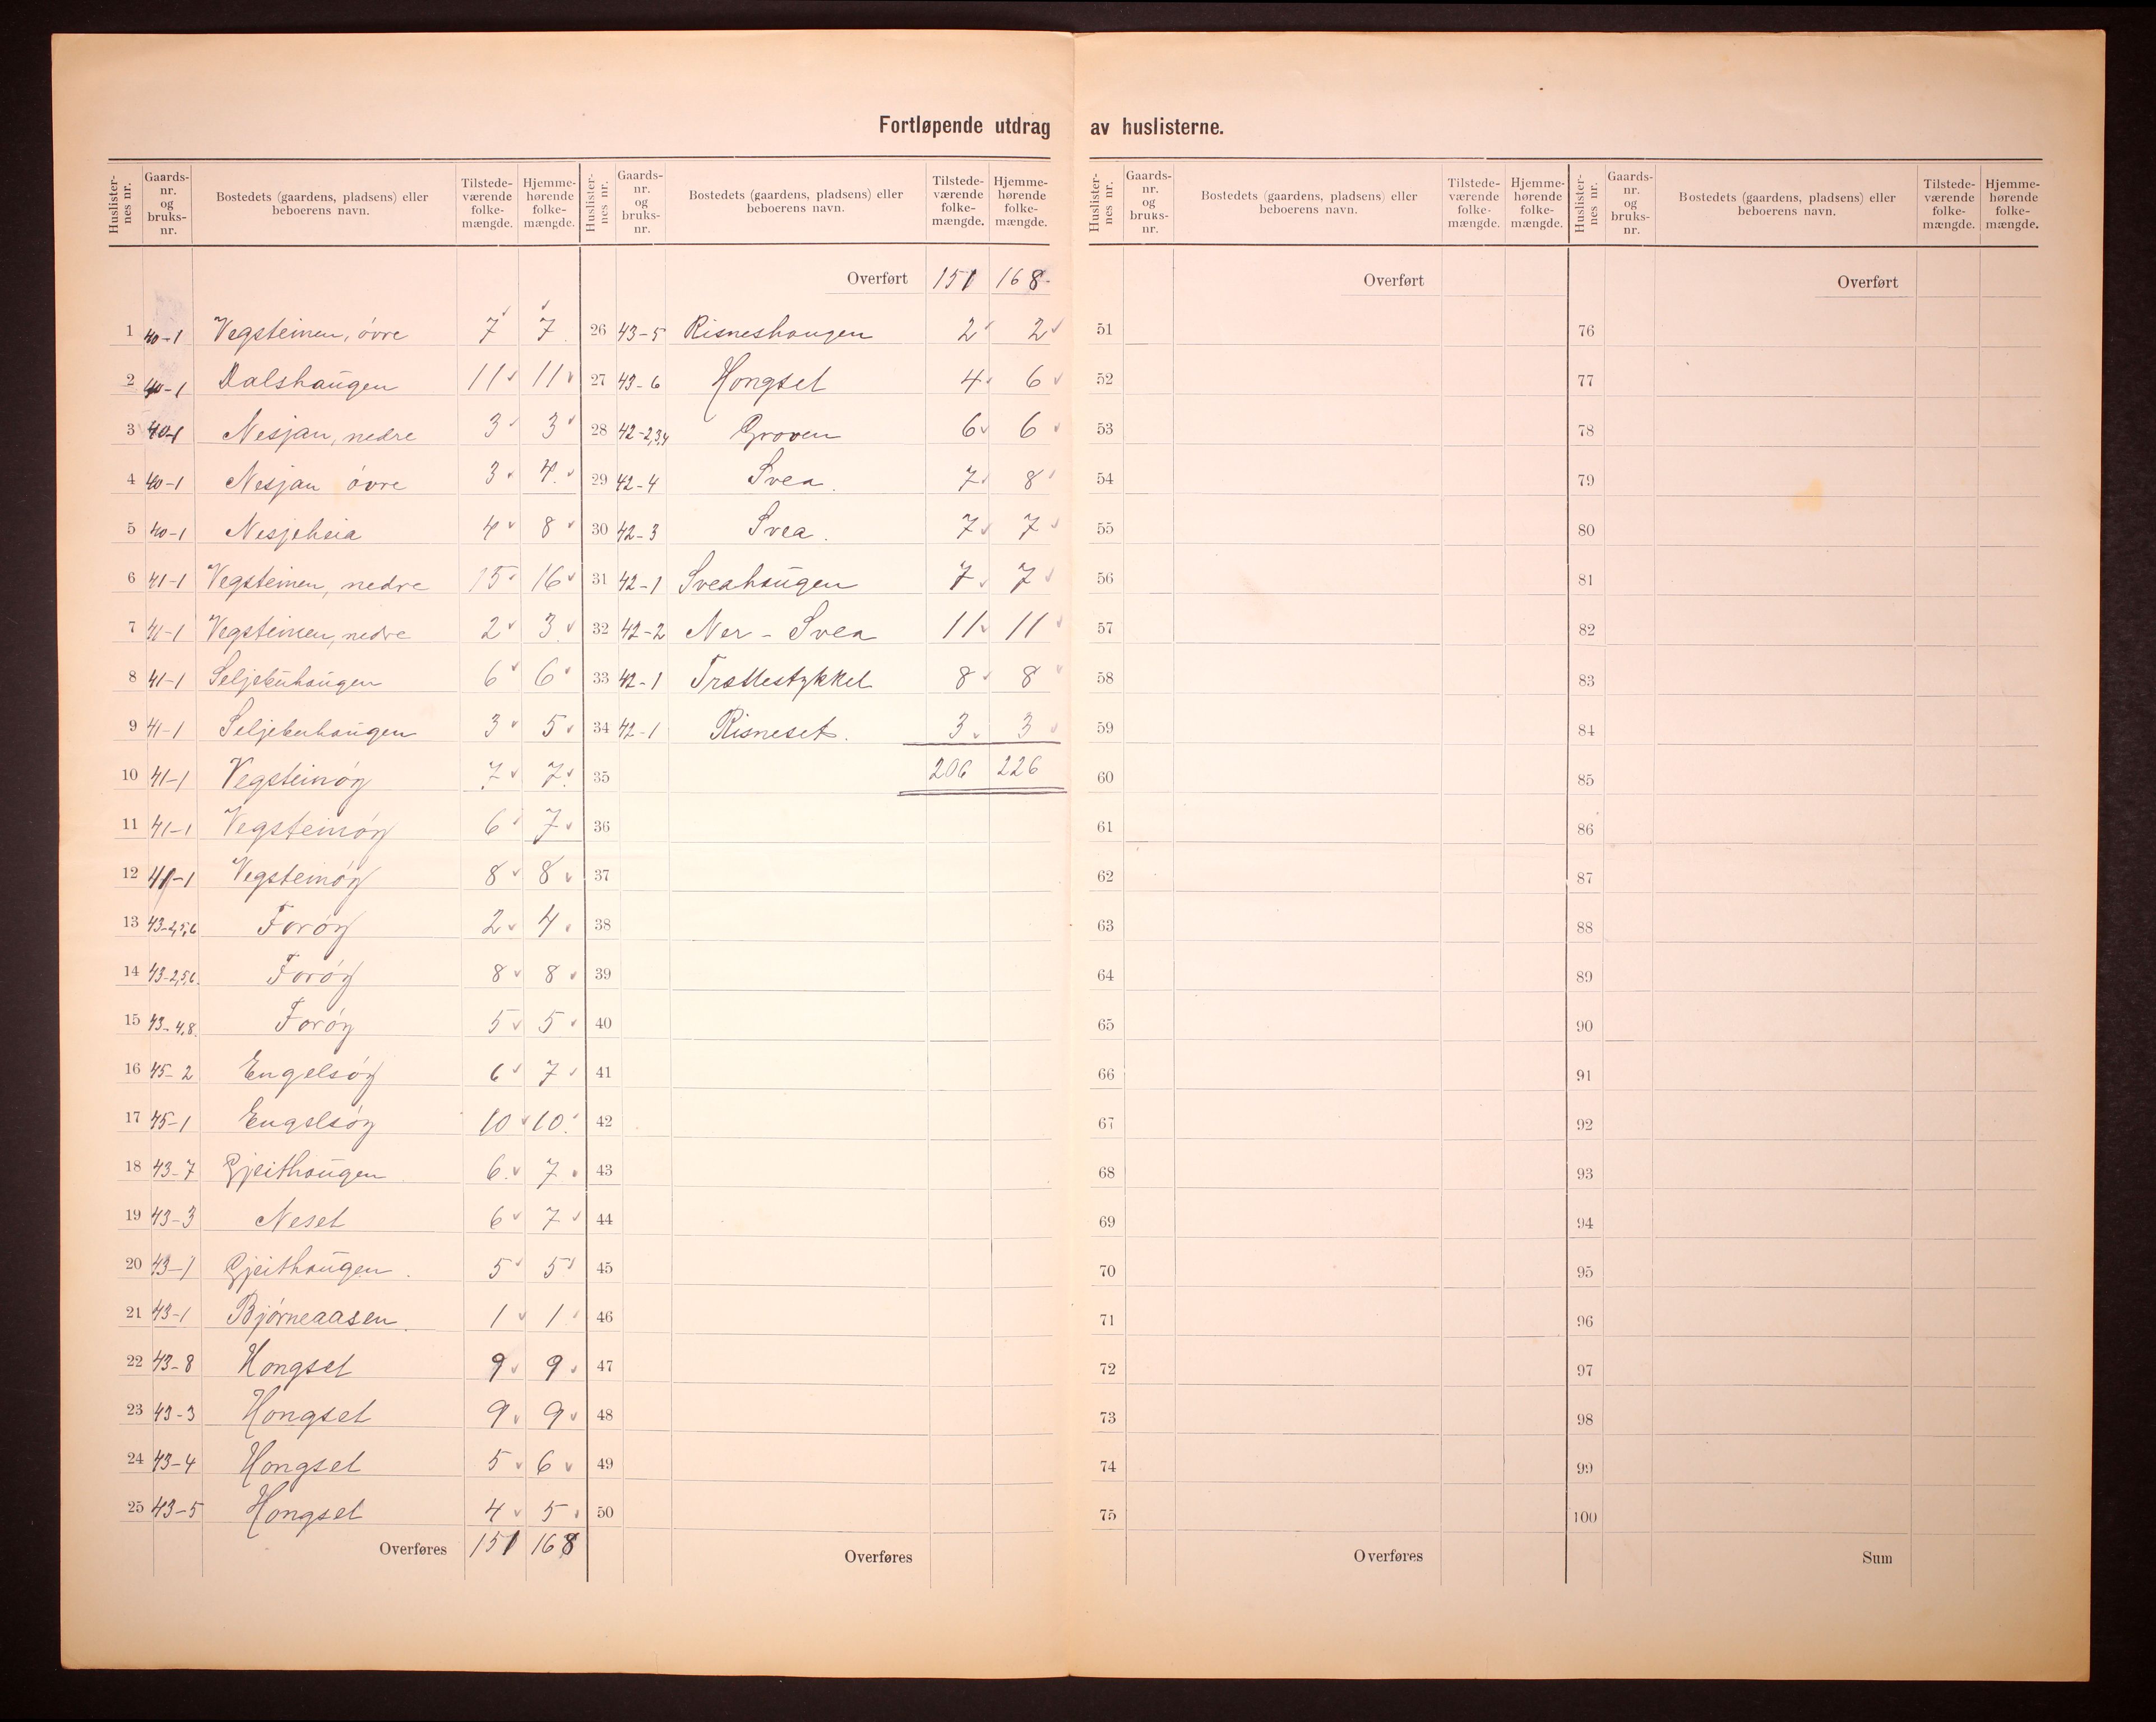 Fortløpende utdrag av huslisterne.
Huslisternes nr. | Gaards-nr. og bruks-nr. | Bostedets (gaardens, pladsens) eller beboerens navn. | Tilstedeværende folkemængde. | Hjemmehørende folkemængde.
1 40-1 Vegsteinen, óvre 7 7
2 40-1 Dalshaugen 11 11
3 40-1 Nesjan, nedre 3 3
4 40-1 Nesjan óvre 3 4
5 40-1 Nesjeheia 4 8
6 41-1 Vegsteinen, nedre 15 16
7 41-1 Vegsteinen, nedre 2 3
8 41-1 Seljebuhaugen 6 6
9 41-1 Seljebuhaugen 3 5
10 41-1 Vegsteinóy 7 7
11 41-1 Vegsteinóy 6 7
12 41-1 Vegsteinóy 8 8
13 43-2,5,6 Foróy 2 4
14 43-2,5,6 Foróy 8 8
15 43-4,8. Foróy 5 5
16 45-2 Engelsóy 6 7
17 45-1 Engelsóy 10 10
18 43-7 Gjeithaugen 6 7
19 43-3 Neset 6 7
20 43-1 Gjeithaugen 5 5
21 43-1 Bjórneaasen 1 1
22 43-8 Hongset 9 9
23 43-3 Hongset 9 9
24 43-4 Hongset 5 6
25 43-5 Hongset 4 5
Overføres 151 168
Huslisternes nr. | Gaards-nr. og bruks-nr. | Bostedets (gaardens, pladsens) eller beboerens navn. | Tilstedeværende folkemængde. | Hjemmehørende folkemængde.
Overført 151 168
26 43-5 Risneshaugen 2 2
27 43-6 Hongset 4 6
28 42-2,3,4 Groven 6 6
29 42-4 Svea. 7 8
30 42-3 Svea. 7 7
31 42-1 Sveahaugen 7 7
32 42-2 Ner-Svea 11 11
33 42-1 Trættestykket 8 8
34 42-1 Risneset. 3 3
35 206 226
36
37
38
39
40
41
42
43
44
45
46
47
48
49
50
Overføres
Huslisternes nr. | Gaards-nr. og bruks-nr. | Bostedets (gaardens, pladsens) eller beboerens navn. | Tilstedeværende folkemængde. | Hjemmehørende folkemængde.
Overført
51
52
53
54
55
56
57
58
59
60
61
62
63
64
65
66
67
68
69
70
71
72
73
74
75
Overføres
Huslisternes nr. | Gaards-nr. og bruks-nr. | Bostedets (gaardens, pladsens) eller beboerens navn. | Tilstedeværende folkemængde. | Hjemmehørende folkemængde.
Overført
76
77
78
79
80
81
82
83
84
85
86
87
88
89
90
91
92
93
94
95
96
97
98
99
100
Sum